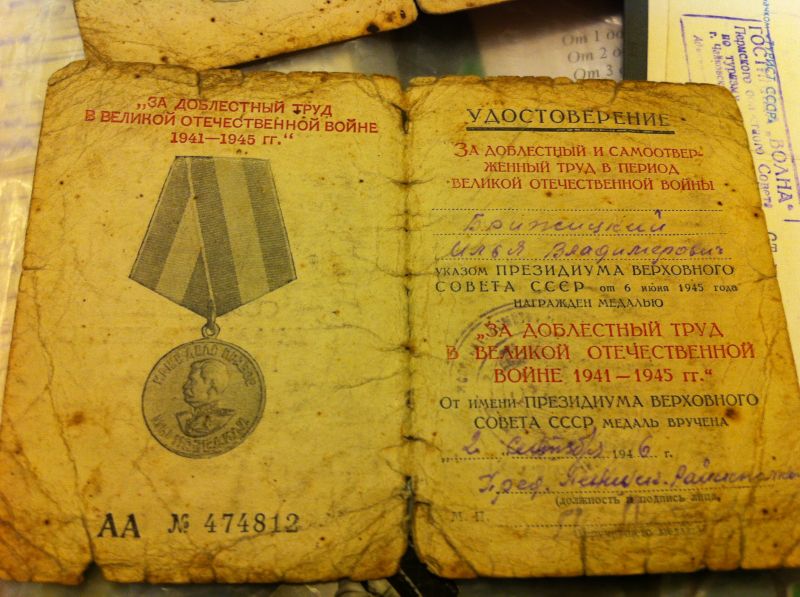 От 1
От 2
От 3
ТУРИСТ СССР
"ВОЛНА"
Пермского
Совета
„ЗА ДОБЛЕСТНЫЙ ТРУД
В ВЕЛИКОЙ ОТЕЧЕСТВЕННОЙ ВОЙНЕ
1941—1945 гг.“
НАШЕ ДЕЛО ПРАВОЕ
МЫ ПОБЕДИЛИ
АА № 474812
УДОСТОВЕРЕНИЕ
ЗА ДОБЛЕСТНЫЙ И САМООТВЕР-
ЖЕННЫЙ ТРУД В ПЕРИОД
ВЕЛИКОЙ ОТЕЧЕСТВЕННОЙ ВОЙНЫ
Брижицкий
Илья Владимерович
УКАЗОМ ПРЕЗИДИУМА ВЕРХОВНОГО
СОВЕТА СССР от 6 июня 1945 года
НАГРАЖДЕН МЕДАЛЬЮ
„ЗА ДОБЛЕСТНЫЙ ТРУД
В ВЕЛИКОЙ ОТЕЧЕСТВЕННОЙ
ВОЙНЕ 1941—1945 гг.“
От имени ПРЕЗИДИУМА ВЕРХОВНОГО
СОВЕТА СССР МЕДАЛЬ ВРУЧЕНА
„2 сентября 1946 г.
Пред.
(должность и подпись лица,
М. П.